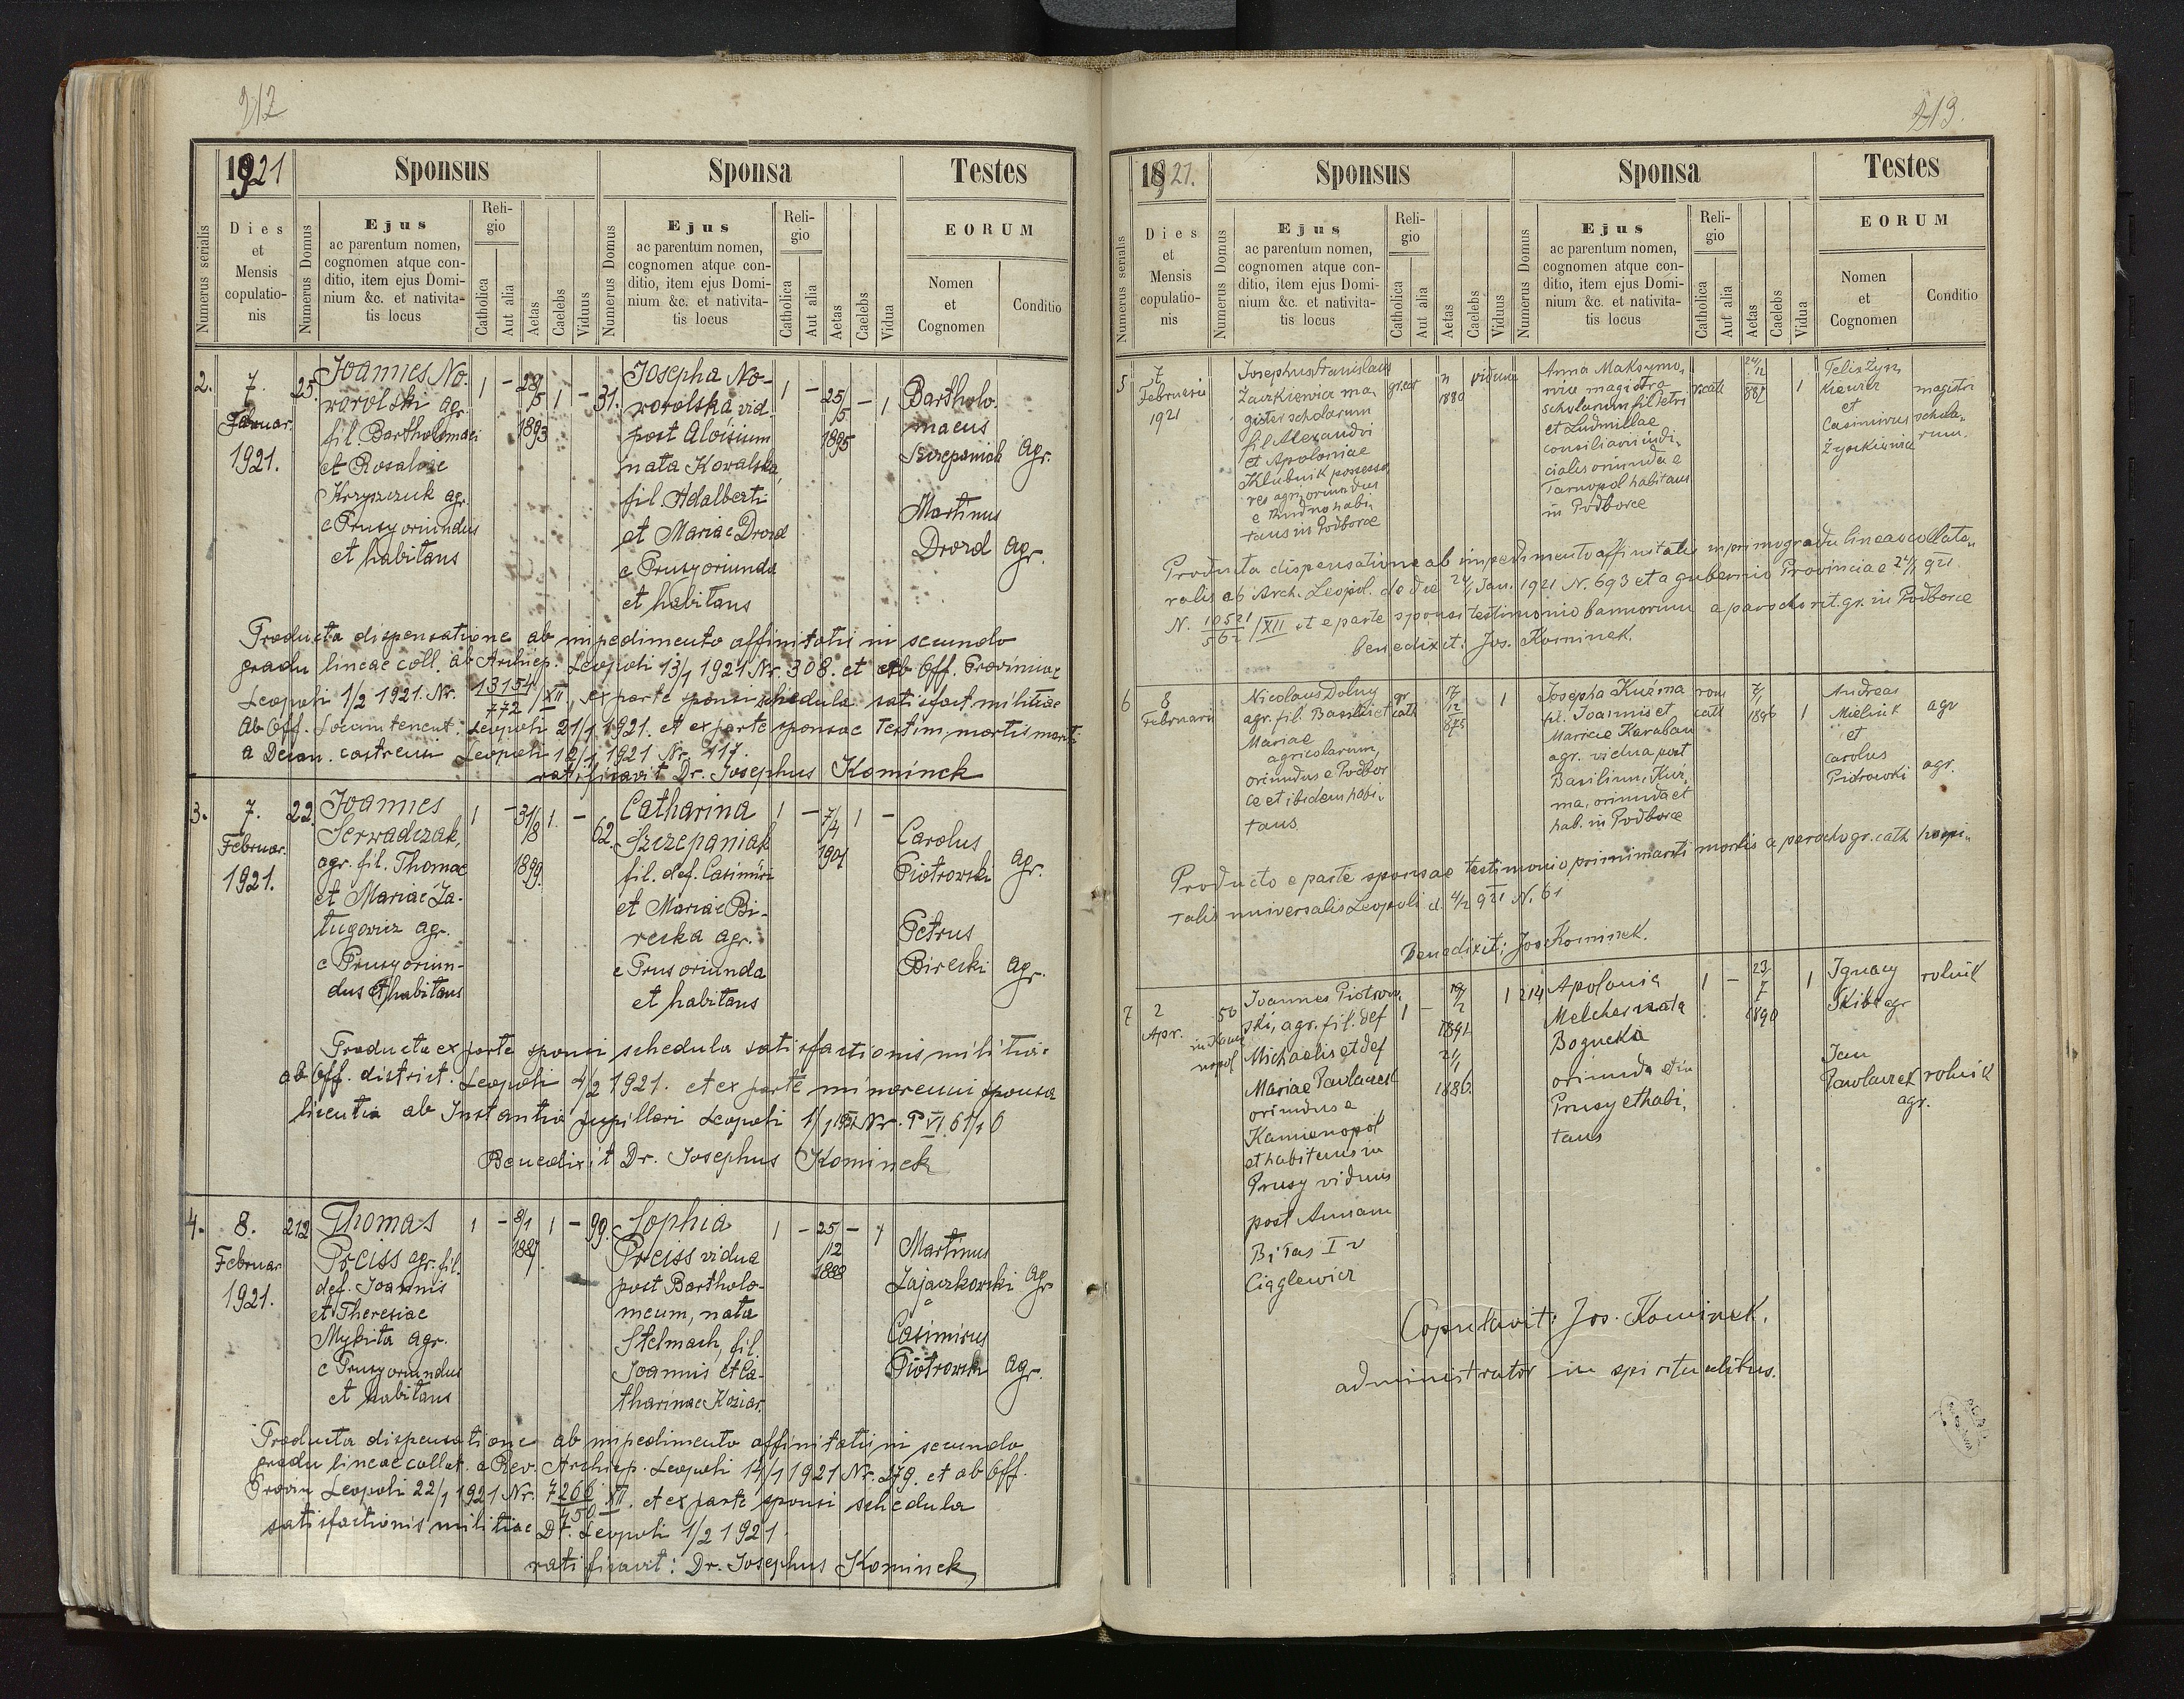 212
1921
Sponsus
Sponsa
Testes
Numerus serialis
Dies
et
Mensis
copulatio-
nis
Numerus Domus
Ejus
ac parentum nomen,
cognomen atque con-
ditio, item ejus Domi-
nium &c. et nativita-
tis locus
Reli-
gio
Catholica
Aut alia
Aetas
Caelebs
Viduus
Numerus Domus
Ejus
ac parentum nomen,
cognomen atque con-
ditio, item ejus Domi-
nium &c. et nativita-
tis locus
Reli-
gio
Catholica
Aut alia
Aetas
Caelebs
Vidua
EORUM
Nomen
et
Cognomen
Conditio
2.
7.
Februar.
1921.
25.
Joannes No-
worolski agr.
fil. Bartholomaei
et Rosaliae
Krzyszczuk agr.
e Prusy oriundus
et habitans
1 - 28/5 1893 1 -
31.
Josepha No-
worolska vid.
post Aloisium
nata Kowalska,
fil. Adalberti
et Mariae Drozd
e Prusy oriunda
et habitans
1 - 25/5 1895 - 1
Bartholo-
maeus
Szczepaniak agr.
Martinus
Drozd agr.
Producta dispensatione ab impedimento affinitatis in secundo
gradu lineae coll. ab Archiep. Leopoli 13/1 1921 Nr. 308. et ab Off. Provinciae
Leopoli 1/2 1921. Nr. 13154/772 /XII, ex parte sponsi schedula satisfact. militiae
ab Off. Locumtenent. Leopoli 21/1 1921. et ex parte sponsae testim. mortis mariti
a Decan. castrensi Leopoli 12/1 1921 Nr. 117.
ratificavit Dr. Josephus Kominek
3.
7.
Februar.
1921.
22.
Joannes
Serwadczak,
agr. fil. Thomae
et Mariae Za-
tugowicz agr.
e Prusy oriun-
dus et habitans
1 - 31/8 1899. 1. -
62.
Catharina
Szczepaniak
fil. def. Casimiri
et Mariae Bi-
recka agr.
e Prus oriunda
et habitans
1 - 7/4 1901 1 -
Carolus
Piotrowski agr.
Petrus
Birecki agr.
Producta ex parte sponsi schedula satisfactionis militiae
ab Off. district. Leopoli 4/2 1921. et ex parte minorenni sponsa
licentia ab Instantia pupillari Leopoli 1/1 1921 Nr. P VI 61/10
Benedixit Dr. Josephus Kominek
4.
8.
Februar
1921.
212
Thomas
Preiss agr. fil.
def. Joannis
et Theresiae
Mykita agr.
e Prusy oriundus
et habitans
1 - 8/1 1887. 1 -
99.
Sophia
Preiss vidua
post Bartholo-
meum, nata
Stelmach, fil.
Joannis et Ca-
tharinae Koziar.
1 - 25/12 1888 - 1
Martinus
Zajączkowski agr.
Casimirus
Piotrowski agr.
Producta dispensatione ab impedimento affinitatis in secundo
gradu lineae collat. a Rev. Archiep. Leopoli 14/1 1921 Nr. 279. et ab Off.
Provin Leopoli 22/1 1921 Nr. 7266/450 XII. et ex parte sponsi schedula
satisfactionis militiae Dr. Leopoli 1/2 1921.
ratificavit: Dr. Josephus Kominek
213.
1921.
Sponsus
Sponsa
Testes
Numerus serialis
Dies
et
Mensis
copulatio-
nis
Numerus Domus
Ejus
ac parentum nomen,
cognomen atque con-
ditio, item ejus Domi-
nium &c. et nativita-
tis locus
Reli-
gio
Catholica
Aut alia
Aetas
Caelebs
Viduus
Numerus Domus
Ejus
ac parentum nomen,
cognomen atque con-
ditio, item ejus Domi-
nium &c. et nativita-
tis locus
Reli-
gio
Catholica
Aut alia
Aetas
Caelebs
Vidua
EORUM
Nomen
et
Cognomen
Conditio
5
7
Februarii
1921
Josephus Stanislaus
Żaczkiewicz ma-
gister scholarum
fil Alexandri
et Apoloniae
Klubnik possesso
res agri, oriundus
e Rudno habi-
tans in Podborce
gr. cat
1880
viduus
Anna Maksymo-
wicz magistra
scholarum fil Petri
et Ludmillae
consiliarii iudi-
cialis oriunda e
Tarnopol habitans
in Podborce
r. cath
24/12 887
1
Felis Zyn
kiewicz
et
Casimirus
Zyszkiewicz
magistri
schola-
rum.
Producta dispensatione ab impedimento affinitatis in primo gradu lineae collate-
ralis ab Arch. Leopol. de die 24/1 Jan. 1921 N. 693 et a gubernio Provinciae 24/1 921
N. 10521/562 /XII et e parte sponsi testimonio bannorum a parocho rit. gr. in Podborce
benedixit: Jos. Kominek.
6
8
Februarii
Nicolaus Dolny
agr. fil. Basilii et
Mariae
agricolarum,
oriundus e Podbor
ce et ibidem habi-
tans
gr
cath
17/12 875
1
Josepha Kuźma
fil. Joannis et
Mariae Karaban
agr. vidua post
Basilium Kuź-
ma, oriunda et
hab. in Podborce
rom
cath
7/1 1886
1
Andreas
Mielnik
et
Carolus
Piotrowski
agr
agr.
Producto e parte sponsae testimonio primi mariti mortis a parocho gr. cath hospi-
talis universalis Leopoli d. 4/2 921 N. 61
Benedixit: Jos Kominek.
7
2
Apr.
50
in Kami
nopol
Joannes Piotrow-
ski, agr. fil. def
Michaelis et def
Mariae Pawlaczek
oriundus e
Kamienopol
et habitans in
Prusy viduus
post Annam
Bitas I v
Ciąglewicz
1 -
1891
21/1
1886.
1
214
Apolonia
Melcher nata
Bogucka
oriunda et in
Prusy et habi-
tans
1 -
23/7 1890
1
Ignacy
Skiba agr
rolnik
Jan
Pawlaczek
agr.
rolnik
Copulavit: Jos. Kominek.
administrator in spiritualibus.